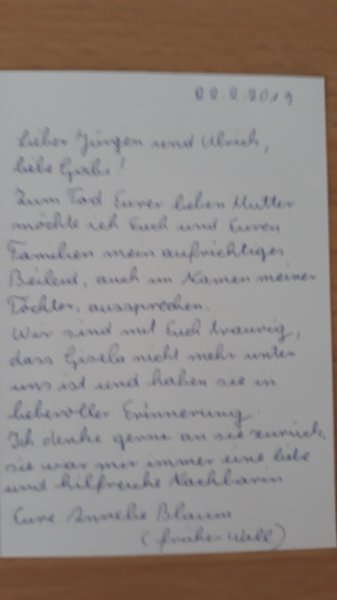 22.2.2019
Lieber Jürgen und Ulrich,
liebe Gabi!
Zum Tod Eurer lieben Mutter
möchte ich Euch und Euren
Familien mein aufrichtiges
Beileid, auch im Namen meiner
Töchter, aussprechen.
Wir sind mit Euch traurig,
dass Gisela nicht mehr unter
uns ist und haben sie in
liebevoller Erinnerung.
Ich denke gerne an sie zurück,
sie war mir immer eine liebe
und hilfreiche Nachbarin
Eure Blaum
(früher Will)